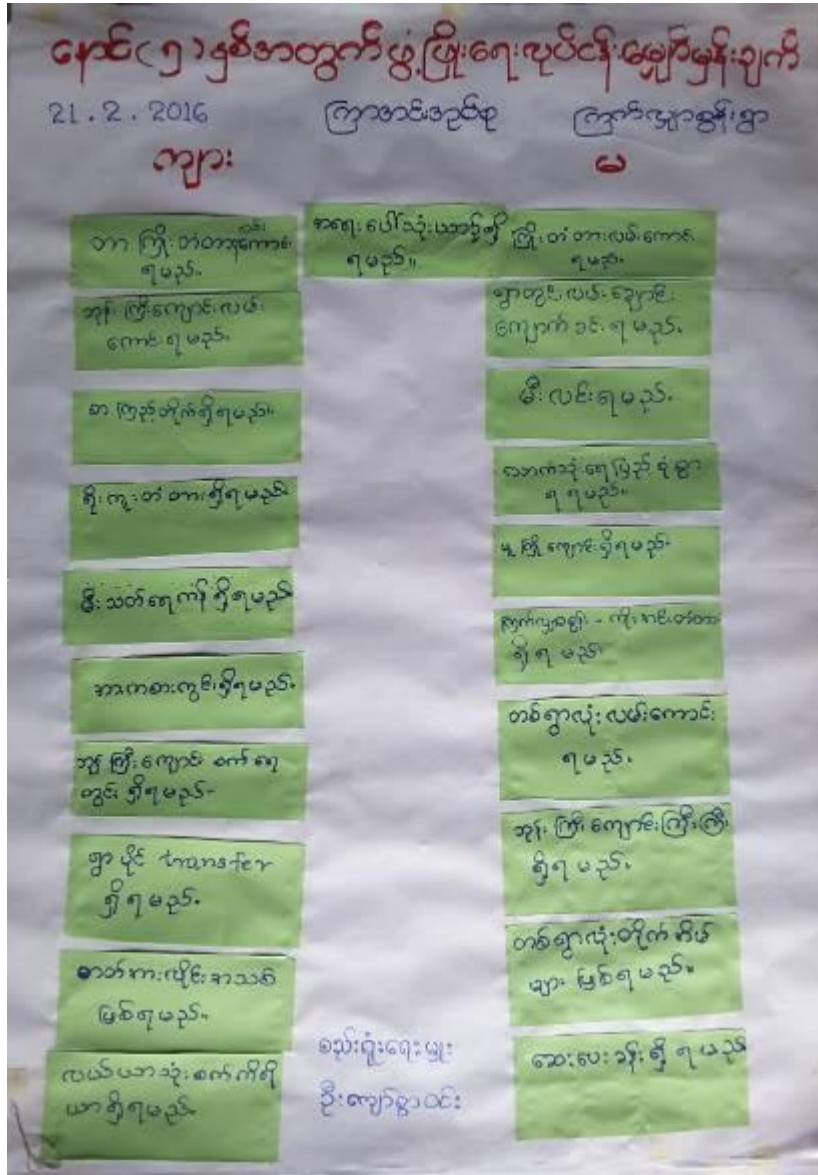 နောင်(၅)နှစ်အတွက်ဖွံ့ဖြိုးရေးလုပ်ငန်းမျှော်မှန်းချက်
21.2.2016 ကြာအင်းအုပ်စု ကြက်လျှာစွန်းရွာ
ကျား မ
တာကြိုးတံတားလမ်းကောင်း
ရမည်။
ဘုန်းကြီးကျောင်းလမ်း
ကောင်းရမည်။
စာကြည့်တိုက်ရှိရမည်။
ရိုးကူးတံတားရှိရမည်
မီးသတ်ရေကန်ရှိရမည်
အားကစားကွင်းရှိရမည်။
ဘုန်းကြီးကျောင်း စက်ရေ
တွင်း ရှိရမည်-
ရွာပိုင် transfer
ရှိရမည်။
ဓာတ်အားလိုင်းအသစ်
ဖြစ်ရမည်။
လယ်ယာသုံးစက်ကိရိ
ယာရှိရမည်
အရေးပေါ်သုံးယာဉ်ရှိ
ရမည်။
ကြိုးတံတားလမ်းကောင်း
ရမည်။
ရွာတွင်းလမ်းချောင်း
ကျောက်ခင်းရမည်။
မီးလင်းရမည်။
သောက်သုံးရေပြည့်စုံစွာ
ရရမည်။
မူကြိုကျောင်းရှိရမည်
ကြက်လျှာစွန်း - ကိုးအင်းတံတား
ရှိရမည်။
တစ်ရွာလုံးလမ်းကောင်း
ရမည်။
ဘုန်းကြီးကျောင်းကြီးကြီး
ရှိရမည်။
တစ်ရွာလုံးတိုက်အိမ်
များ ဖြစ်ရမည်။
ဆေးပေးခန်းရှိ ရမည်
စည်းရုံးရေးမှူး
ဦးကျော်စွာဝင်း